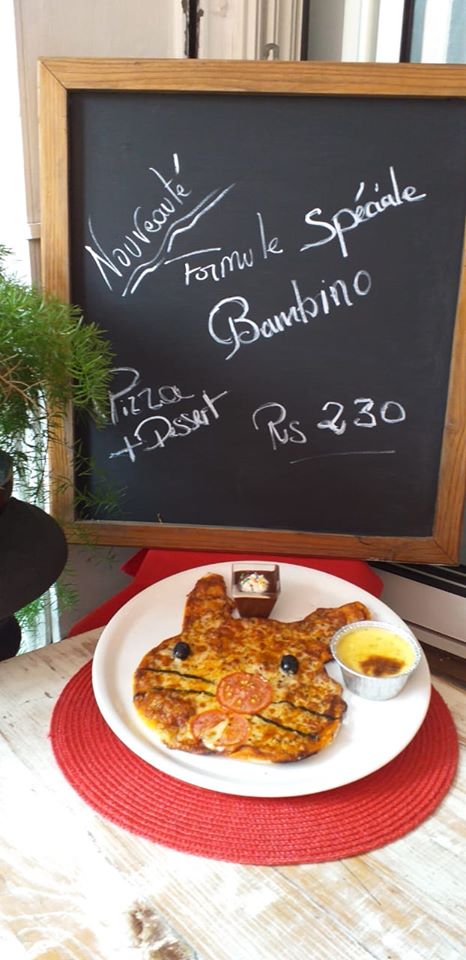 Nouveauté
Formule Spéciale
Bambino
Pizza
+ Dessert
Rus 230